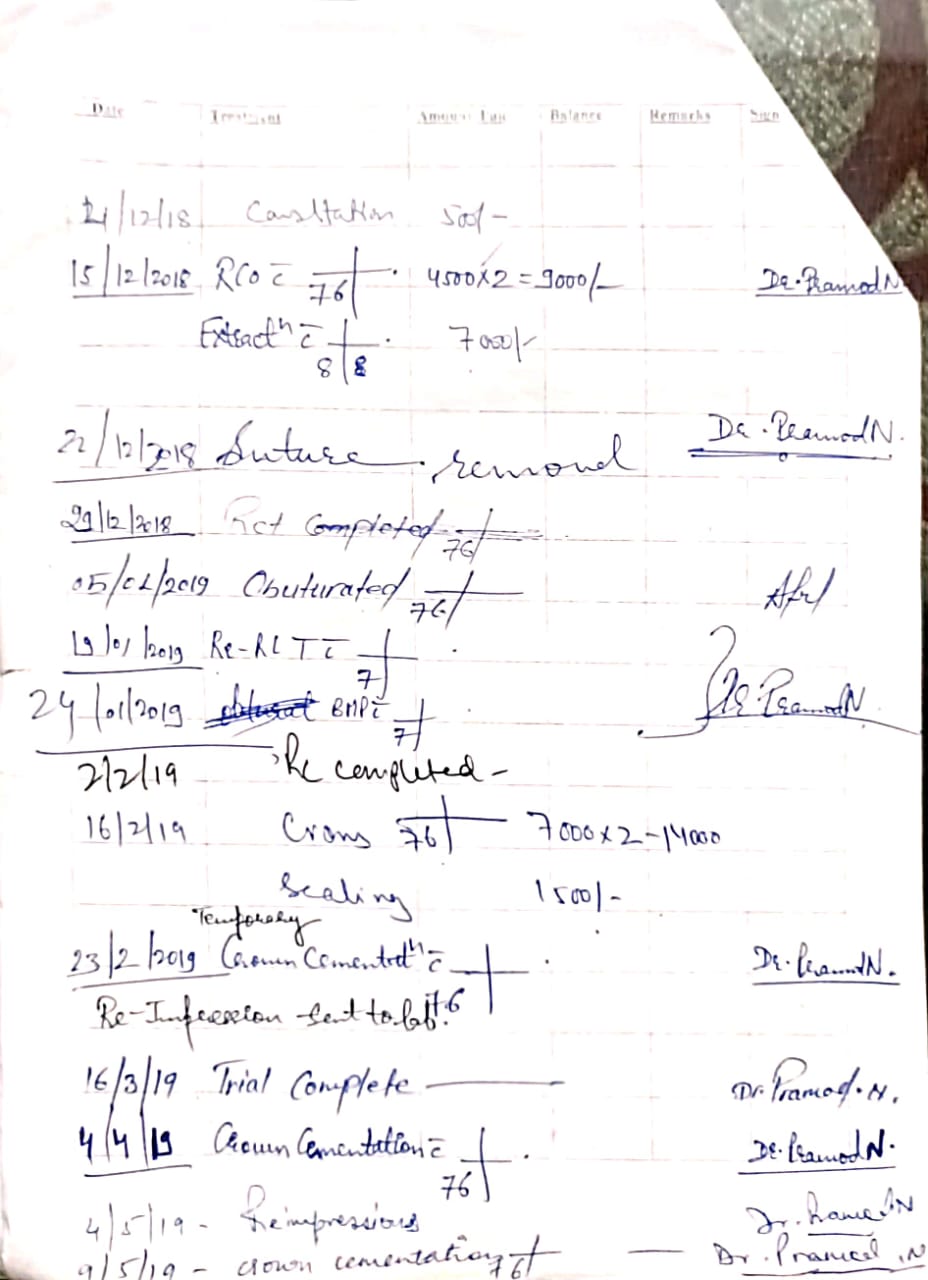 Date Treatment Amount Paid Balance Remarks Sign
21/12/18 Consltation 500/-
15/12/2018 RCO c̄ 76 4500x2=9000/- Dr. Pramod N
Extractⁿ c̄ 8 8 7000/-
22/12/2018 Suture removal Dr. Pramod N.
29/12/2018 Rct Completed 76
05/01/2019 Obuturated 76
19/01/2019 Re-RCT c̄ 7
24/01/2019 BMP c̄ 7 Dr. Pramod N
2/2/19 Rc completed -
16/2/19 Crowns 76 7000x2-14000
Scaling 1500/-
Temporary
23/2/2019 Crown Cementatⁿ c̄ 76 Dr. Pramod N.
Re-Impression sent to lab.
16/3/19 Trial Complete Dr. Pramod. N.
4/4/19 Crown Cementation c̄ 76 Dr. Pramod N.
4/5/19 - Reimpressions Dr. Pramod N
9/5/19 - crown cementation 76 Dr. Pramod .N